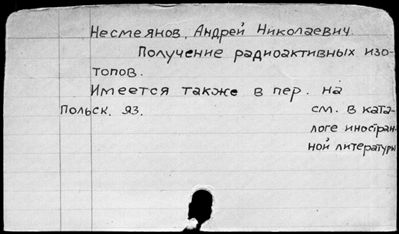 Несмеянов, Андрей Николаевич.
Получение радиоактивных изо-
топов.
Имеется также в пер. на
польск. яз. см. в ката-
логе иностран-
ной литературы